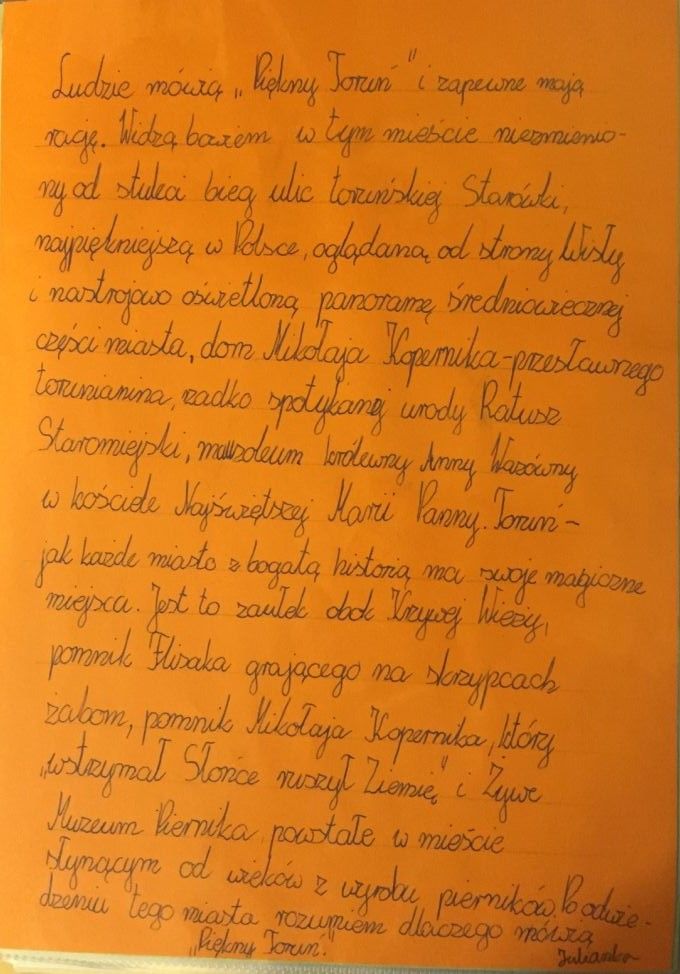 Ludzie mówią „Piękny Toruń" i zapewne mają
rację. Widzą bowiem w tym mieście niezmienio-
ny od stuleci bieg ulic toruńskiej Starówki,
najpiękniejszą w Polsce, oglądaną od strony Wisły
i nastrojowo oświetloną panoramę średniowiecznej
części miasta, dom Mikołaja Kopernika-przesławnego
torunianina, rzadko spotykanej urody Ratusz
Staromiejski, mauzoleum królewny Anny Wazówny
w kościele Najświętszej Marii Panny. Toruń -
jak każde miasto z bogatą historią ma swoje magiczne
miejsca. Jest to zaułek obok Krzywej Wieży,
pomnik Flisaka grającego na skrzypcach
żabom, pomnik Mikołaja Kopernika, który
„wstrzymał Słońce ruszył Ziemię" i Żywe
Muzeum Piernika powstałe w mieście
słynącym od wieków z wyrobu pierników. Po odwie-
dzeniu tego miasta rozumiem dlaczego mówią
„Piękny Toruń."
Julianka